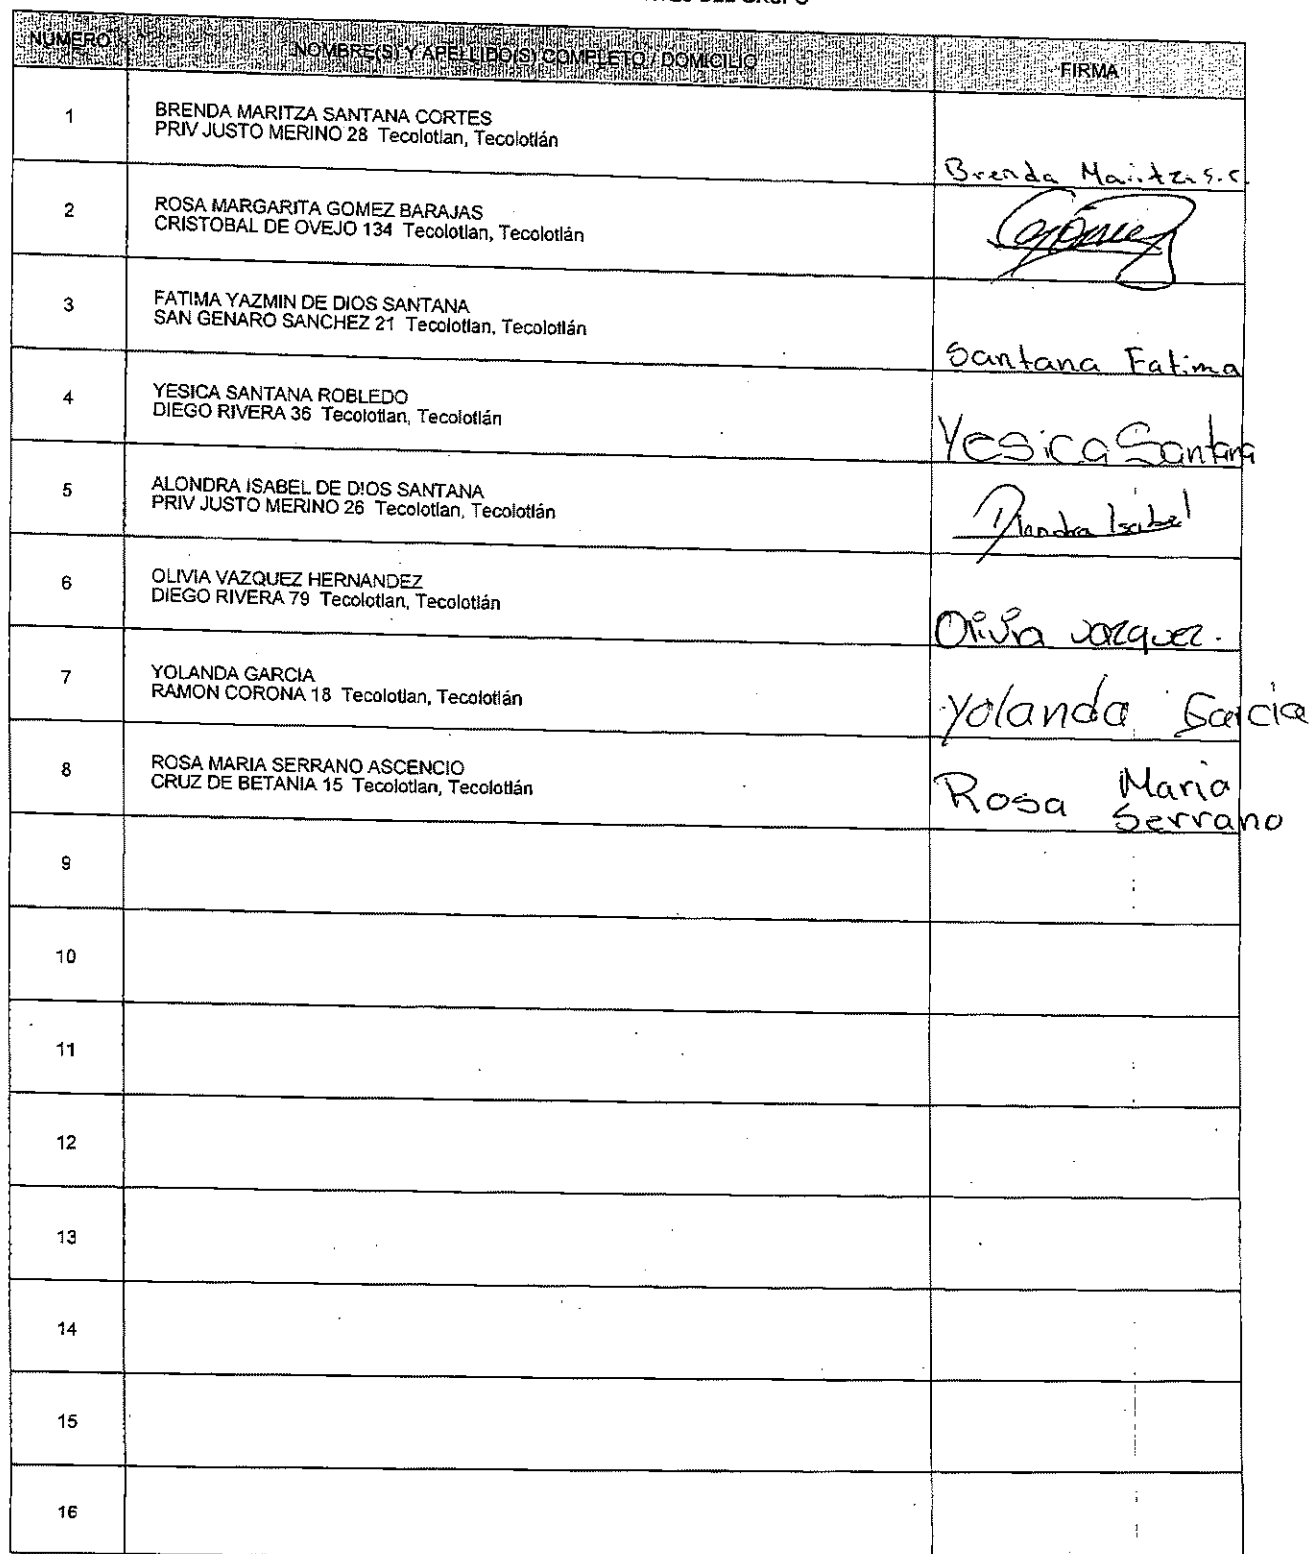 DEL GRUPO
NUMERO NOMBRE(S) Y APELLIDO(S) COMPLETO / DOMICILIO FIRMA
1 BRENDA MARITZA SANTANA CORTES
PRIV JUSTO MERINO 28 Tecolotlan, Tecolotlán
Brenda Maritza S.C.
2 ROSA MARGARITA GOMEZ BARAJAS
CRISTOBAL DE OVEJO 134 Tecolotlan, Tecolotlán
3 FATIMA YAZMIN DE DIOS SANTANA
SAN GENARO SANCHEZ 21 Tecolotlan, Tecolotlán
Santana Fatima
4 YESICA SANTANA ROBLEDO
DIEGO RIVERA 36 Tecolotlan, Tecolotlán
Yesica Santana
5 ALONDRA ISABEL DE DIOS SANTANA
PRIV JUSTO MERINO 26 Tecolotlan, Tecolotlán
Alondra Isabel
6 OLIVIA VAZQUEZ HERNANDEZ
DIEGO RIVERA 79 Tecolotlan, Tecolotlán
Olivia vazquez.
7 YOLANDA GARCIA
RAMON CORONA 18 Tecolotlan, Tecolotlán
Yolanda Garcia
8 ROSA MARIA SERRANO ASCENCIO
CRUZ DE BETANIA 15 Tecolotlan, Tecolotlán
Rosa Maria
Serrano
9
10
11
12
13
14
15
16